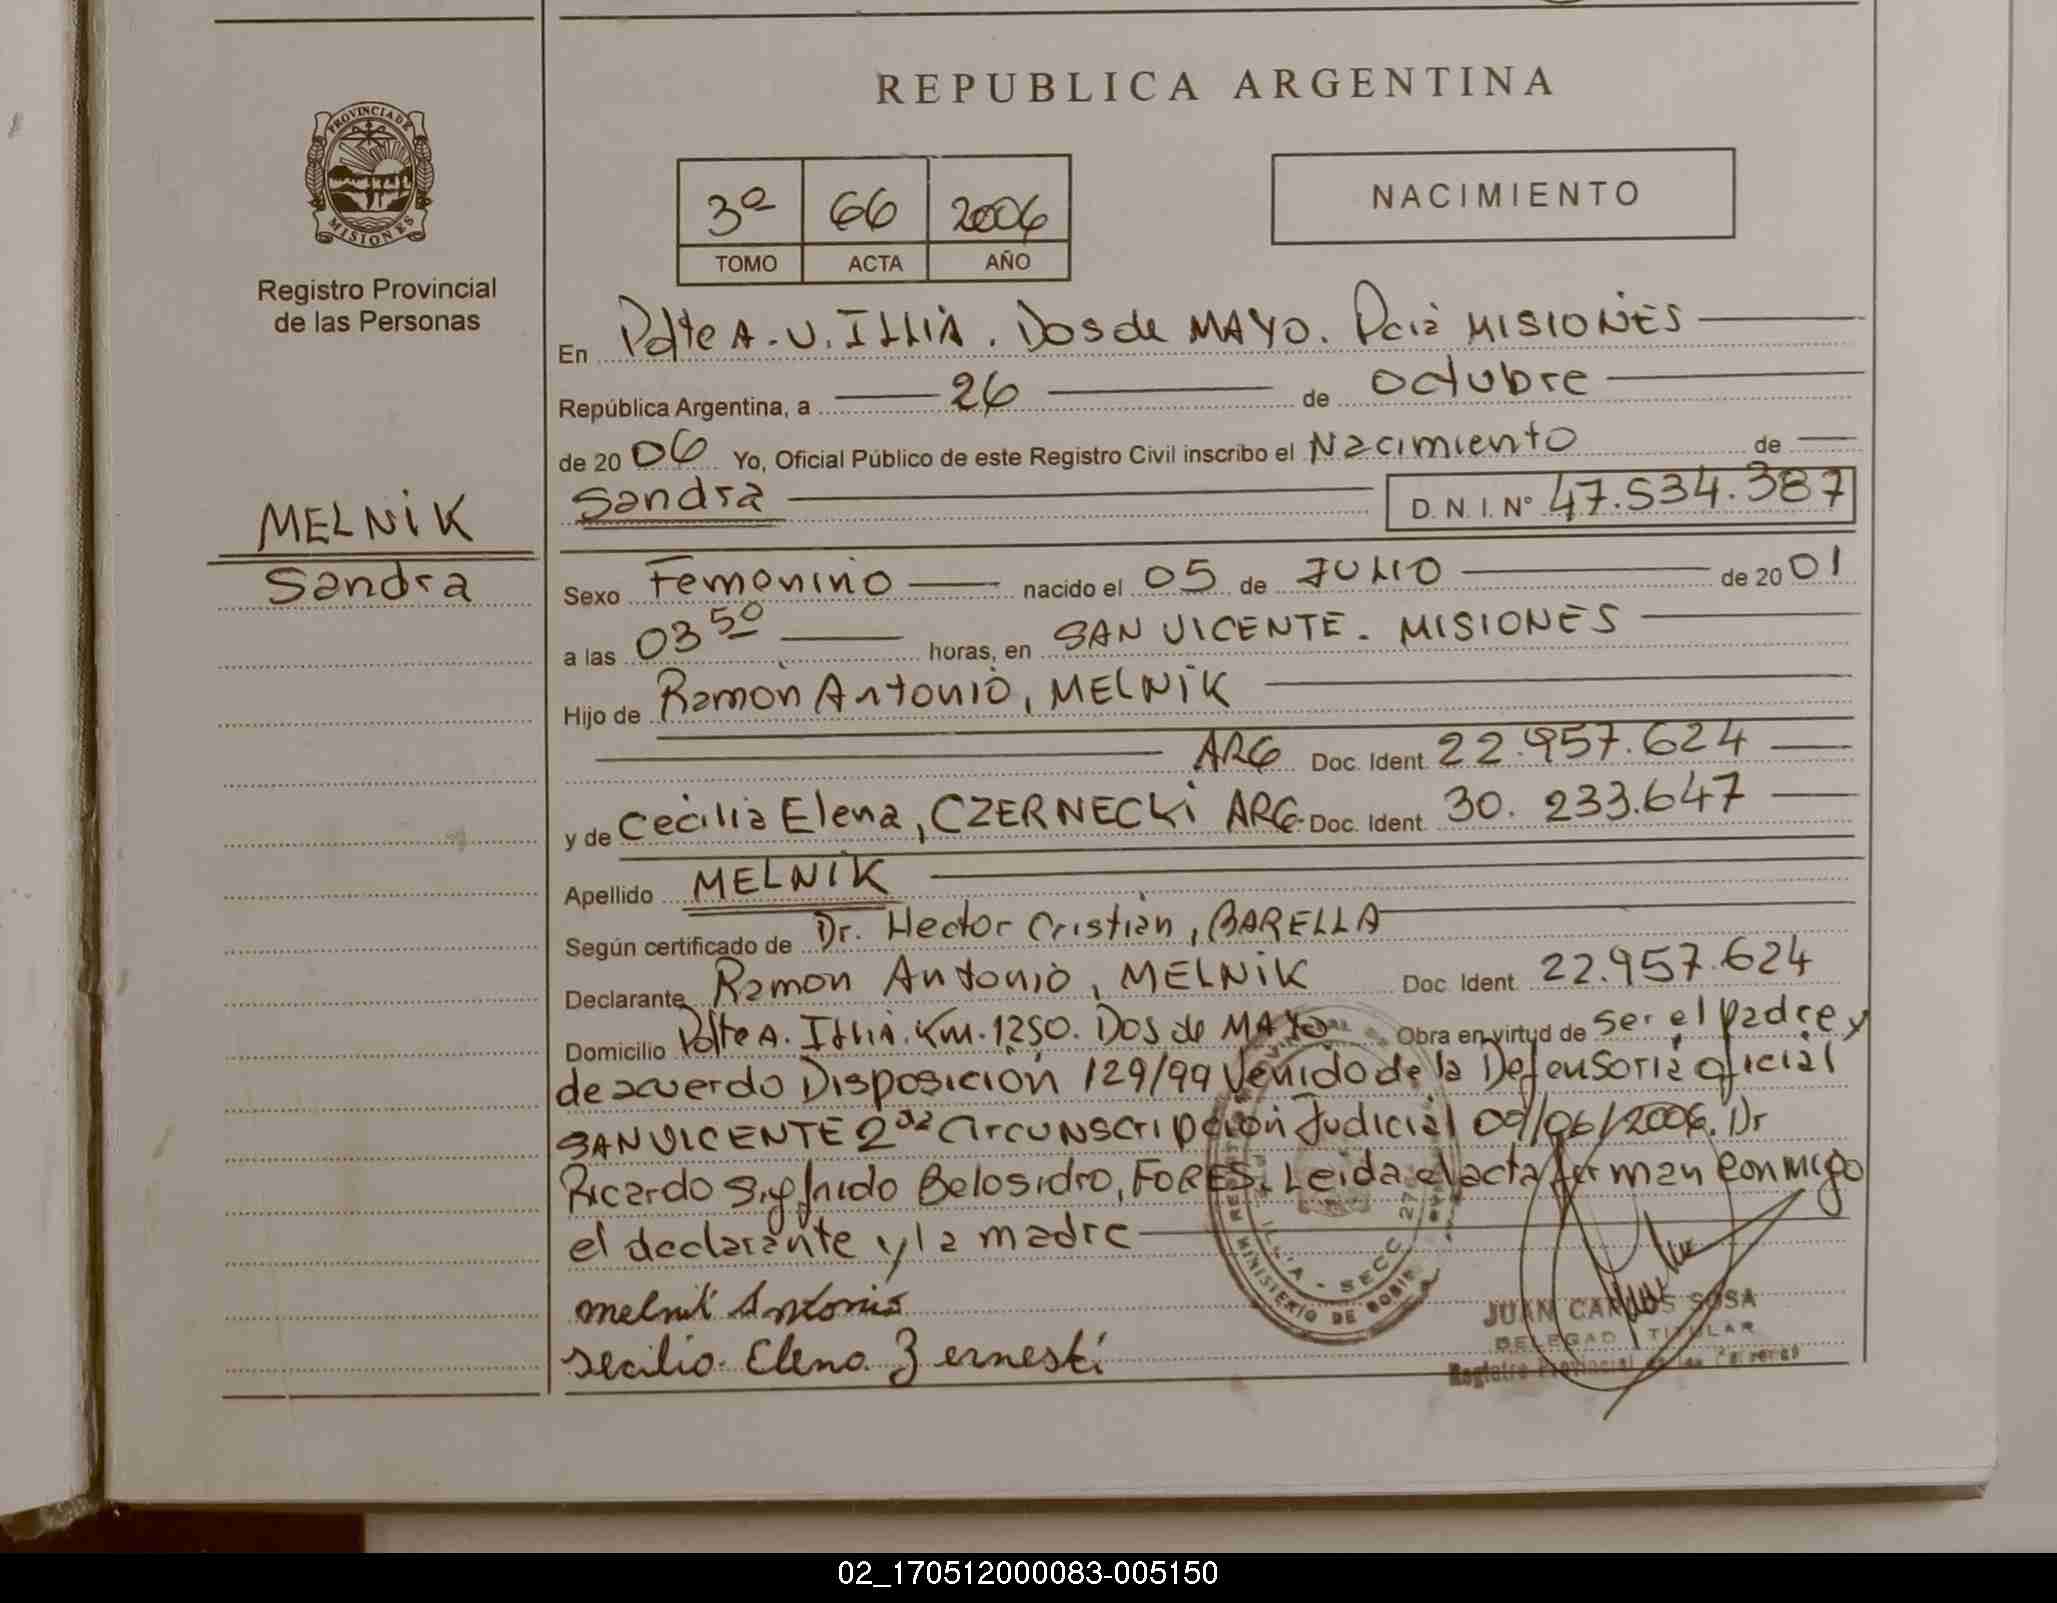 REPUBLICA ARGENTINA
PROVINCIA DE
MISIONES
Registro Provincial
de las Personas
3º 66 2006
TOMO ACTA AÑO
NACIMIENTO
MELNIK
Sandra
En Pdte A. U. ILLIA. Dos de MAYO. Pcia MISIONES
República Argentina, a 26 de octubre
de 2006 Yo, Oficial Público de este Registro Civil inscribo el Nacimiento de
Sandra D. N. I. Nº 47.534.387
Sexo Femenino nacido el 05 de JULIO de 2001
a las 03 50 horas, en SAN VICENTE. MISIONES
Hijo de Ramon Antonio, MELNIK
ARG Doc. Ident. 22.957.624
y de Cecilia Elena, CZERNECKI ARG. Doc. Ident. 30. 233.647
Apellido MELNIK
Según certificado de Dr. Hector Cristian, BARELLA
Declarante Ramon Antonio, MELNIK Doc. Ident. 22.957.624
Domicilio Pdte A. Illia. Km. 1250. Dos de MAYO Obra en virtud de ser el padre y
de acuerdo Disposicion 129/99 Venido de la Defensoria oficial
SAN VICENTE 2da Circunscripcion Judicial 09/06/2006. Dr
Ricardo Sigfrido Belosidro, FORES. Leida el acta firman conmigo
el declarante y la madre
melnik Antonio
secilia Elena Zerneski
MINISTERIO DE
JUAN CARLOS SOSA
DELEGADO TITULAR
Registro Provincial de las
02_170512000083-005150